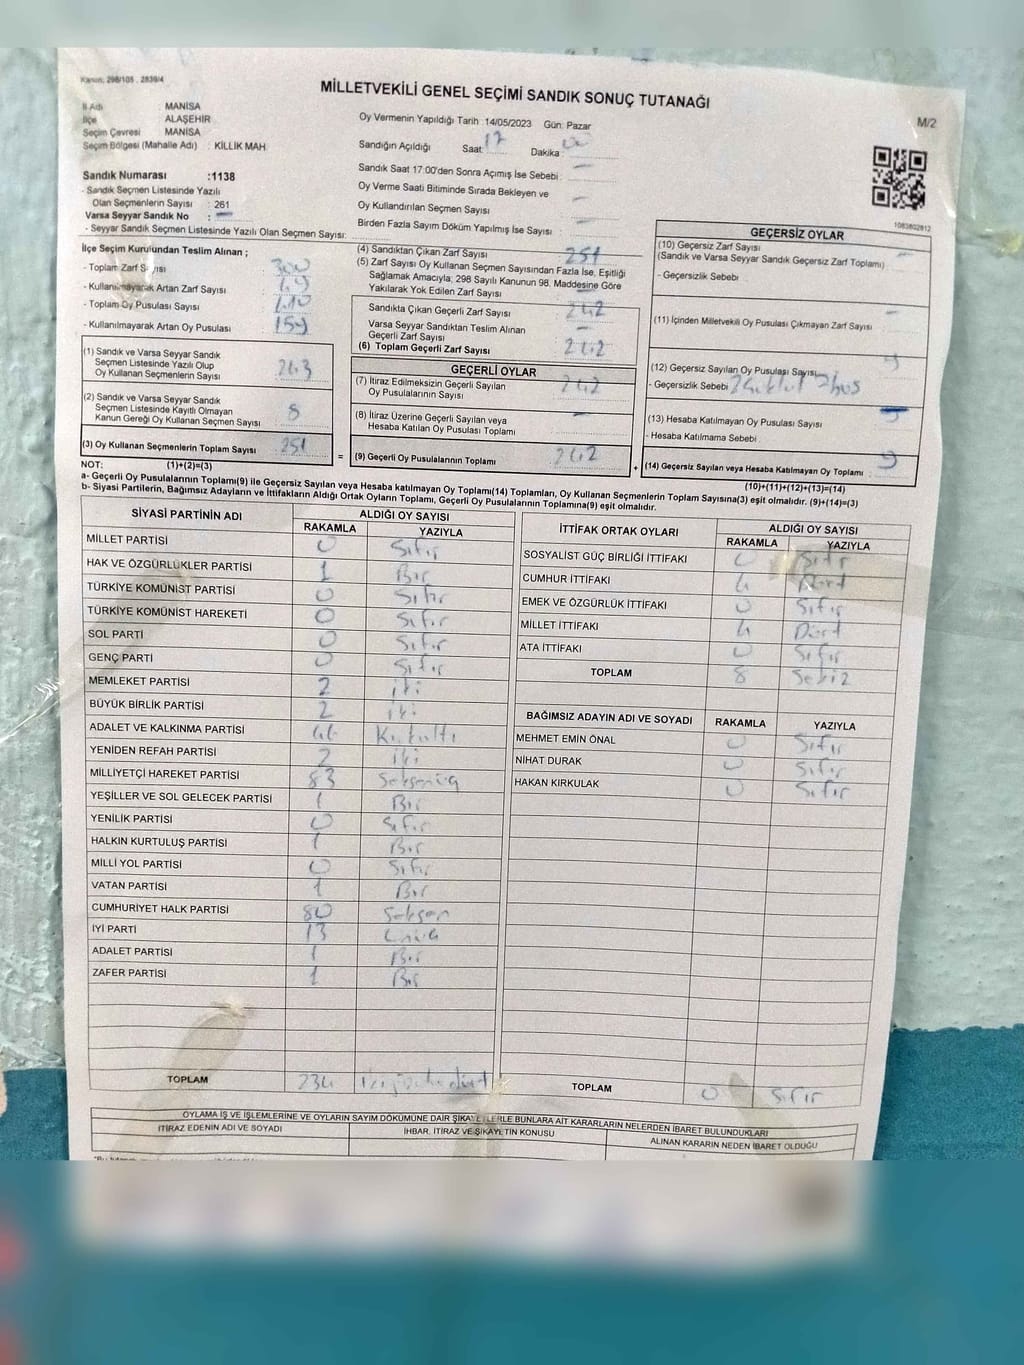 Kanun: 298/105 , 2839/4
MİLLETVEKİLİ GENEL SEÇİMİ SANDIK SONUÇ TUTANAĞI
M/2
İl Adı : MANİSA
İlçe : ALAŞEHİR
Seçim Çevresi : MANİSA
Seçim Bölgesi (Mahalle Adı) : KİLLİK MAH.
Sandık Numarası :1138
- Sandık Seçmen Listesinde Yazılı
Olan Seçmenlerin Sayısı : 261
Varsa Seyyar Sandık No : -
- Seyyar Sandık Seçmen Listesinde Yazılı Olan Seçmen Sayısı:
Oy Vermenin Yapıldığı Tarih :14/05/2023 Gün: Pazar
Sandığın Açıldığı Saat: 17 Dakika: 00
Sandık Saat 17:00'den Sonra Açımış İse Sebebi : -
Oy Verme Saati Bitiminde Sırada Bekleyen ve
Oy Kullandırılan Seçmen Sayısı : -
Birden Fazla Sayım Döküm Yapılmış İse Sayısı : -
1083802812
İlçe Seçim Kurulundan Teslim Alınan ;
- Toplam Zarf Sayısı : 300
- Kullanılmayarak Artan Zarf Sayısı : 49
- Toplam Oy Pusulası Sayısı : 410
- Kullanılmayarak Artan Oy Pusulası : 159
(1) Sandık ve Varsa Seyyar Sandık
Seçmen Listesinde Yazılı Olup
Oy Kullanan Seçmenlerin Sayısı : 243
(2) Sandık ve Varsa Seyyar Sandık
Seçmen Listesinde Kayıtlı Olmayan
Kanun Gereği Oy Kullanan Seçmen Sayısı : 8
(3) Oy Kullanan Seçmenlerin Toplam Sayısı : 251
(4) Sandıktan Çıkan Zarf Sayısı : 251
(5) Zarf Sayısı Oy Kullanan Seçmen Sayısından Fazla İse, Eşitliği
Sağlamak Amacıyla, 298 Sayılı Kanunun 98. Maddesine Göre
Yakılarak Yok Edilen Zarf Sayısı : -
Sandıkta Çıkan Geçerli Zarf Sayısı : 242
Varsa Seyyar Sandıktan Teslim Alınan
Geçerli Zarf Sayısı : -
(6) Toplam Geçerli Zarf Sayısı : 242
GEÇERLİ OYLAR
(7) İtiraz Edilmeksizin Geçerli Sayılan
Oy Pusulalarının Sayısı : 242
(8) İtiraz Üzerine Geçerli Sayılan veya
Hesaba Katılan Oy Pusulası Toplamı : -
= (9) Geçerli Oy Pusulalarının Toplamı : 242
GEÇERSİZ OYLAR
(10) Geçersiz Zarf Sayısı
(Sandık ve Varsa Seyyar Sandık Geçersiz Zarf Toplamı) : -
- Geçersizlik Sebebi :
(11) İçinden Milletvekili Oy Pusulası Çıkmayan Zarf Sayısı : -
(12) Geçersiz Sayılan Oy Pusulası Sayısı : 9
- Geçersizlik Sebebi :
(13) Hesaba Katılmayan Oy Pusulası Sayısı : -
- Hesaba Katılmama Sebebi :
+ (14) Geçersiz Sayılan veya Hesaba Katılmayan Oy Toplamı : 9
NOT: (1)+(2)=(3)
(10)+(11)+(12)+(13)=(14)
a- Geçerli Oy Pusulalarının Toplamı(9) ile Geçersiz Sayılan veya Hesaba katılmayan Oy Toplamı(14) Toplamları, Oy Kullanan Seçmenlerin Toplam Sayısına(3) eşit olmalıdır. (9)+(14)=(3)
b- Siyasi Partilerin, Bağımsız Adayların ve İttifakların Aldığı Ortak Oyların Toplamı, Geçerli Oy Pusulalarının Toplamına(9) eşit olmalıdır.
SİYASİ PARTİNİN ADI ALDIĞI OY SAYISI
RAKAMLA YAZIYLA
MİLLET PARTİSİ 0 Sıfır
HAK VE ÖZGÜRLÜKLER PARTİSİ 1 Bir
TÜRKİYE KOMÜNİST PARTİSİ 0 Sıfır
TÜRKİYE KOMÜNİST HAREKETİ 0 Sıfır
SOL PARTİ 0 Sıfır
GENÇ PARTİ 0 Sıfır
MEMLEKET PARTİSİ 2 iki
BÜYÜK BİRLİK PARTİSİ 2 iki
ADALET VE KALKINMA PARTİSİ 46 Kırkaltı
YENİDEN REFAH PARTİSİ 2 iki
MİLLİYETÇİ HAREKET PARTİSİ 83 Seksenüç
YEŞİLLER VE SOL GELECEK PARTİSİ 1 Bir
YENİLİK PARTİSİ 0 Sıfır
HALKIN KURTULUŞ PARTİSİ 1 Bir
MİLLİ YOL PARTİSİ 0 Sıfır
VATAN PARTİSİ 1 Bir
CUMHURİYET HALK PARTİSİ 80 Seksen
İYİ PARTİ 13 Onüç
ADALET PARTİSİ 1 Bir
ZAFER PARTİSİ 1 Bir
TOPLAM 234 ikiyüzotuzdört
İTTİFAK ORTAK OYLARI ALDIĞI OY SAYISI
RAKAMLA YAZIYLA
SOSYALİST GÜÇ BİRLİĞİ İTTİFAKI 0 Sıfır
CUMHUR İTTİFAKI 4 Dört
EMEK VE ÖZGÜRLÜK İTTİFAKI 0 Sıfır
MİLLET İTTİFAKI 4 Dört
ATA İTTİFAKI 0 Sıfır
TOPLAM 8 Sekiz
BAĞIMSIZ ADAYIN ADI VE SOYADI RAKAMLA YAZIYLA
MEHMET EMİN ÖNAL 0 Sıfır
NİHAT DURAK 0 Sıfır
HAKAN KIRKULAK 0 Sıfır
TOPLAM 0 Sıfır
OYLAMA İŞ VE İŞLEMLERİNE VE OYLARIN SAYIM DÖKÜMÜNE DAİR ŞİKAYETLERLE BUNLARA AİT KARARLARIN NELERDEN İBARET BULUNDUKLARI
İTİRAZ EDENİN ADI VE SOYADI İHBAR, İTİRAZ VE ŞİKAYETİN KONUSU ALINAN KARARIN NEDEN İBARET OLDUĞU